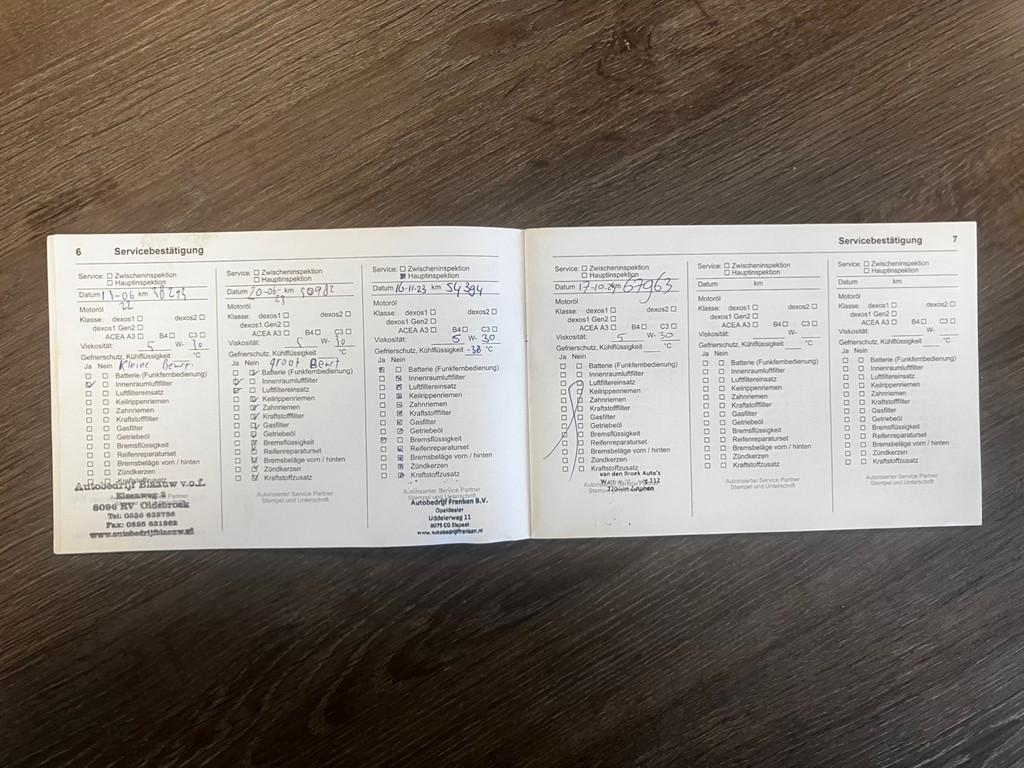 6 Servicebestätigung
Service: ☐ Zwischeninspektion
☐ Hauptinspektion
Datum 13-06 km
22
Motoröl
Klasse: dexos1 ☐ dexos2 ☐
dexos1 Gen2 ☐
ACEA A3 ☐ B4 ☐ C3 ☐
Viskosität: 5 W- 30
Gefrierschutz, Kühlflüssigkeit °C
Ja Nein Kleine Beurt.
Batterie (Funkfernbedienung)
Innenraumluftfilter
Luftfiltereinsatz
Keilrippenriemen
Zahnriemen
Kraftstofffilter
Gasfilter
Getriebeöl
Bremsflüssigkeit
Reifenreparaturset
Bremsbeläge vorn / hinten
Zündkerzen
Kraftstoffzusatz
Autobedrijf Blaauw v.o.f.
Eisenweg 2
8096 RV Oldebroek
Tel: 0525 633756
Fax: 0525 631862
www.autobedrijfblaauw.nl
Service: ☐ Zwischeninspektion
☐ Hauptinspektion
Datum 20-06- km 50982
Motoröl
Klasse: dexos1 ☐ dexos2 ☐
dexos1 Gen2 ☐
ACEA A3 ☐ B4 ☐ C3 ☐
Viskosität: 5 W- 30
Gefrierschutz, Kühlflüssigkeit °C
Ja Nein groot Beurt
Batterie (Funkfernbedienung)
Innenraumluftfilter
Luftfiltereinsatz
Keilrippenriemen
Zahnriemen
Kraftstofffilter
Gasfilter
Getriebeöl
Bremsflüssigkeit
Reifenreparaturset
Bremsbeläge vorn / hinten
Zündkerzen
Kraftstoffzusatz
Autorisierter Service Partner
Stempel und Unterschrift
Service: ☐ Zwischeninspektion
☒ Hauptinspektion
Datum 16-11-23 km 54394
Motoröl
Klasse: dexos1 ☐ dexos2 ☐
dexos1 Gen2 ☐
ACEA A3 ☐ B4 ☐ C3 ☐
Viskosität: 5 W- 30
Gefrierschutz, Kühlflüssigkeit -38 °C
Ja Nein
Batterie (Funkfernbedienung)
Innenraumluftfilter
Luftfiltereinsatz
Keilrippenriemen
Zahnriemen
Kraftstofffilter
Gasfilter
Getriebeöl
Bremsflüssigkeit
Reifenreparaturset
Bremsbeläge vorn / hinten
Zündkerzen
Kraftstoffzusatz
Autorisierter Service Partner
Stempel und Unterschrift
Autobedrijf Fransen B.V.
Opeldealer
Uddelerweg 11
8075 CG Elspeet
www.autobedrijffransen.nl
Servicebestätigung 7
Service: ☐ Zwischeninspektion
☐ Hauptinspektion
Datum 17-10-24 km 67963
Motoröl
Klasse: dexos1 ☐ dexos2 ☐
dexos1 Gen2 ☐
ACEA A3 ☐ B4 ☐ C3 ☐
Viskosität: 5 W- 30
Gefrierschutz, Kühlflüssigkeit °C
Ja Nein
Batterie (Funkfernbedienung)
Innenraumluftfilter
Luftfiltereinsatz
Keilrippenriemen
Zahnriemen
Kraftstofffilter
Gasfilter
Getriebeöl
Bremsflüssigkeit
Reifenreparaturset
Bremsbeläge vorn / hinten
Zündkerzen
Kraftstoffzusatz
van den Broek Auto's
112
Zutphen
Service: ☐ Zwischeninspektion
☐ Hauptinspektion
Datum km
Motoröl
Klasse: dexos1 ☐ dexos2 ☐
dexos1 Gen2 ☐
ACEA A3 ☐ B4 ☐ C3 ☐
Viskosität: W-
Gefrierschutz, Kühlflüssigkeit °C
Ja Nein
Batterie (Funkfernbedienung)
Innenraumluftfilter
Luftfiltereinsatz
Keilrippenriemen
Zahnriemen
Kraftstofffilter
Gasfilter
Getriebeöl
Bremsflüssigkeit
Reifenreparaturset
Bremsbeläge vorn / hinten
Zündkerzen
Kraftstoffzusatz
Autorisierter Service Partner
Stempel und Unterschrift
Service: ☐ Zwischeninspektion
☐ Hauptinspektion
Datum km
Motoröl
Klasse: dexos1 ☐ dexos2 ☐
dexos1 Gen2 ☐
ACEA A3 ☐ B4 ☐ C3 ☐
Viskosität: W-
Gefrierschutz, Kühlflüssigkeit °C
Ja Nein
Batterie (Funkfernbedienung)
Innenraumluftfilter
Luftfiltereinsatz
Keilrippenriemen
Zahnriemen
Kraftstofffilter
Gasfilter
Getriebeöl
Bremsflüssigkeit
Reifenreparaturset
Bremsbeläge vorn / hinten
Zündkerzen
Kraftstoffzusatz
Autorisierter Service Partner
Stempel und Unterschrift